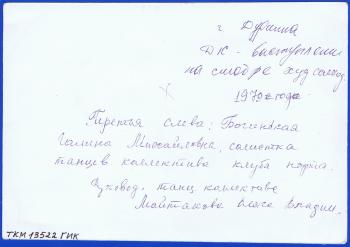 г. Дудинка
ДК - выступление
на смотре худ самод.
1970е года
Третья слева: Богинская
Галина Михайловна, солистка
танцев коллектива клуба порта.
Руковод. танц коллектива
Майтакова Владим.
ТКМ 13522 ГИК